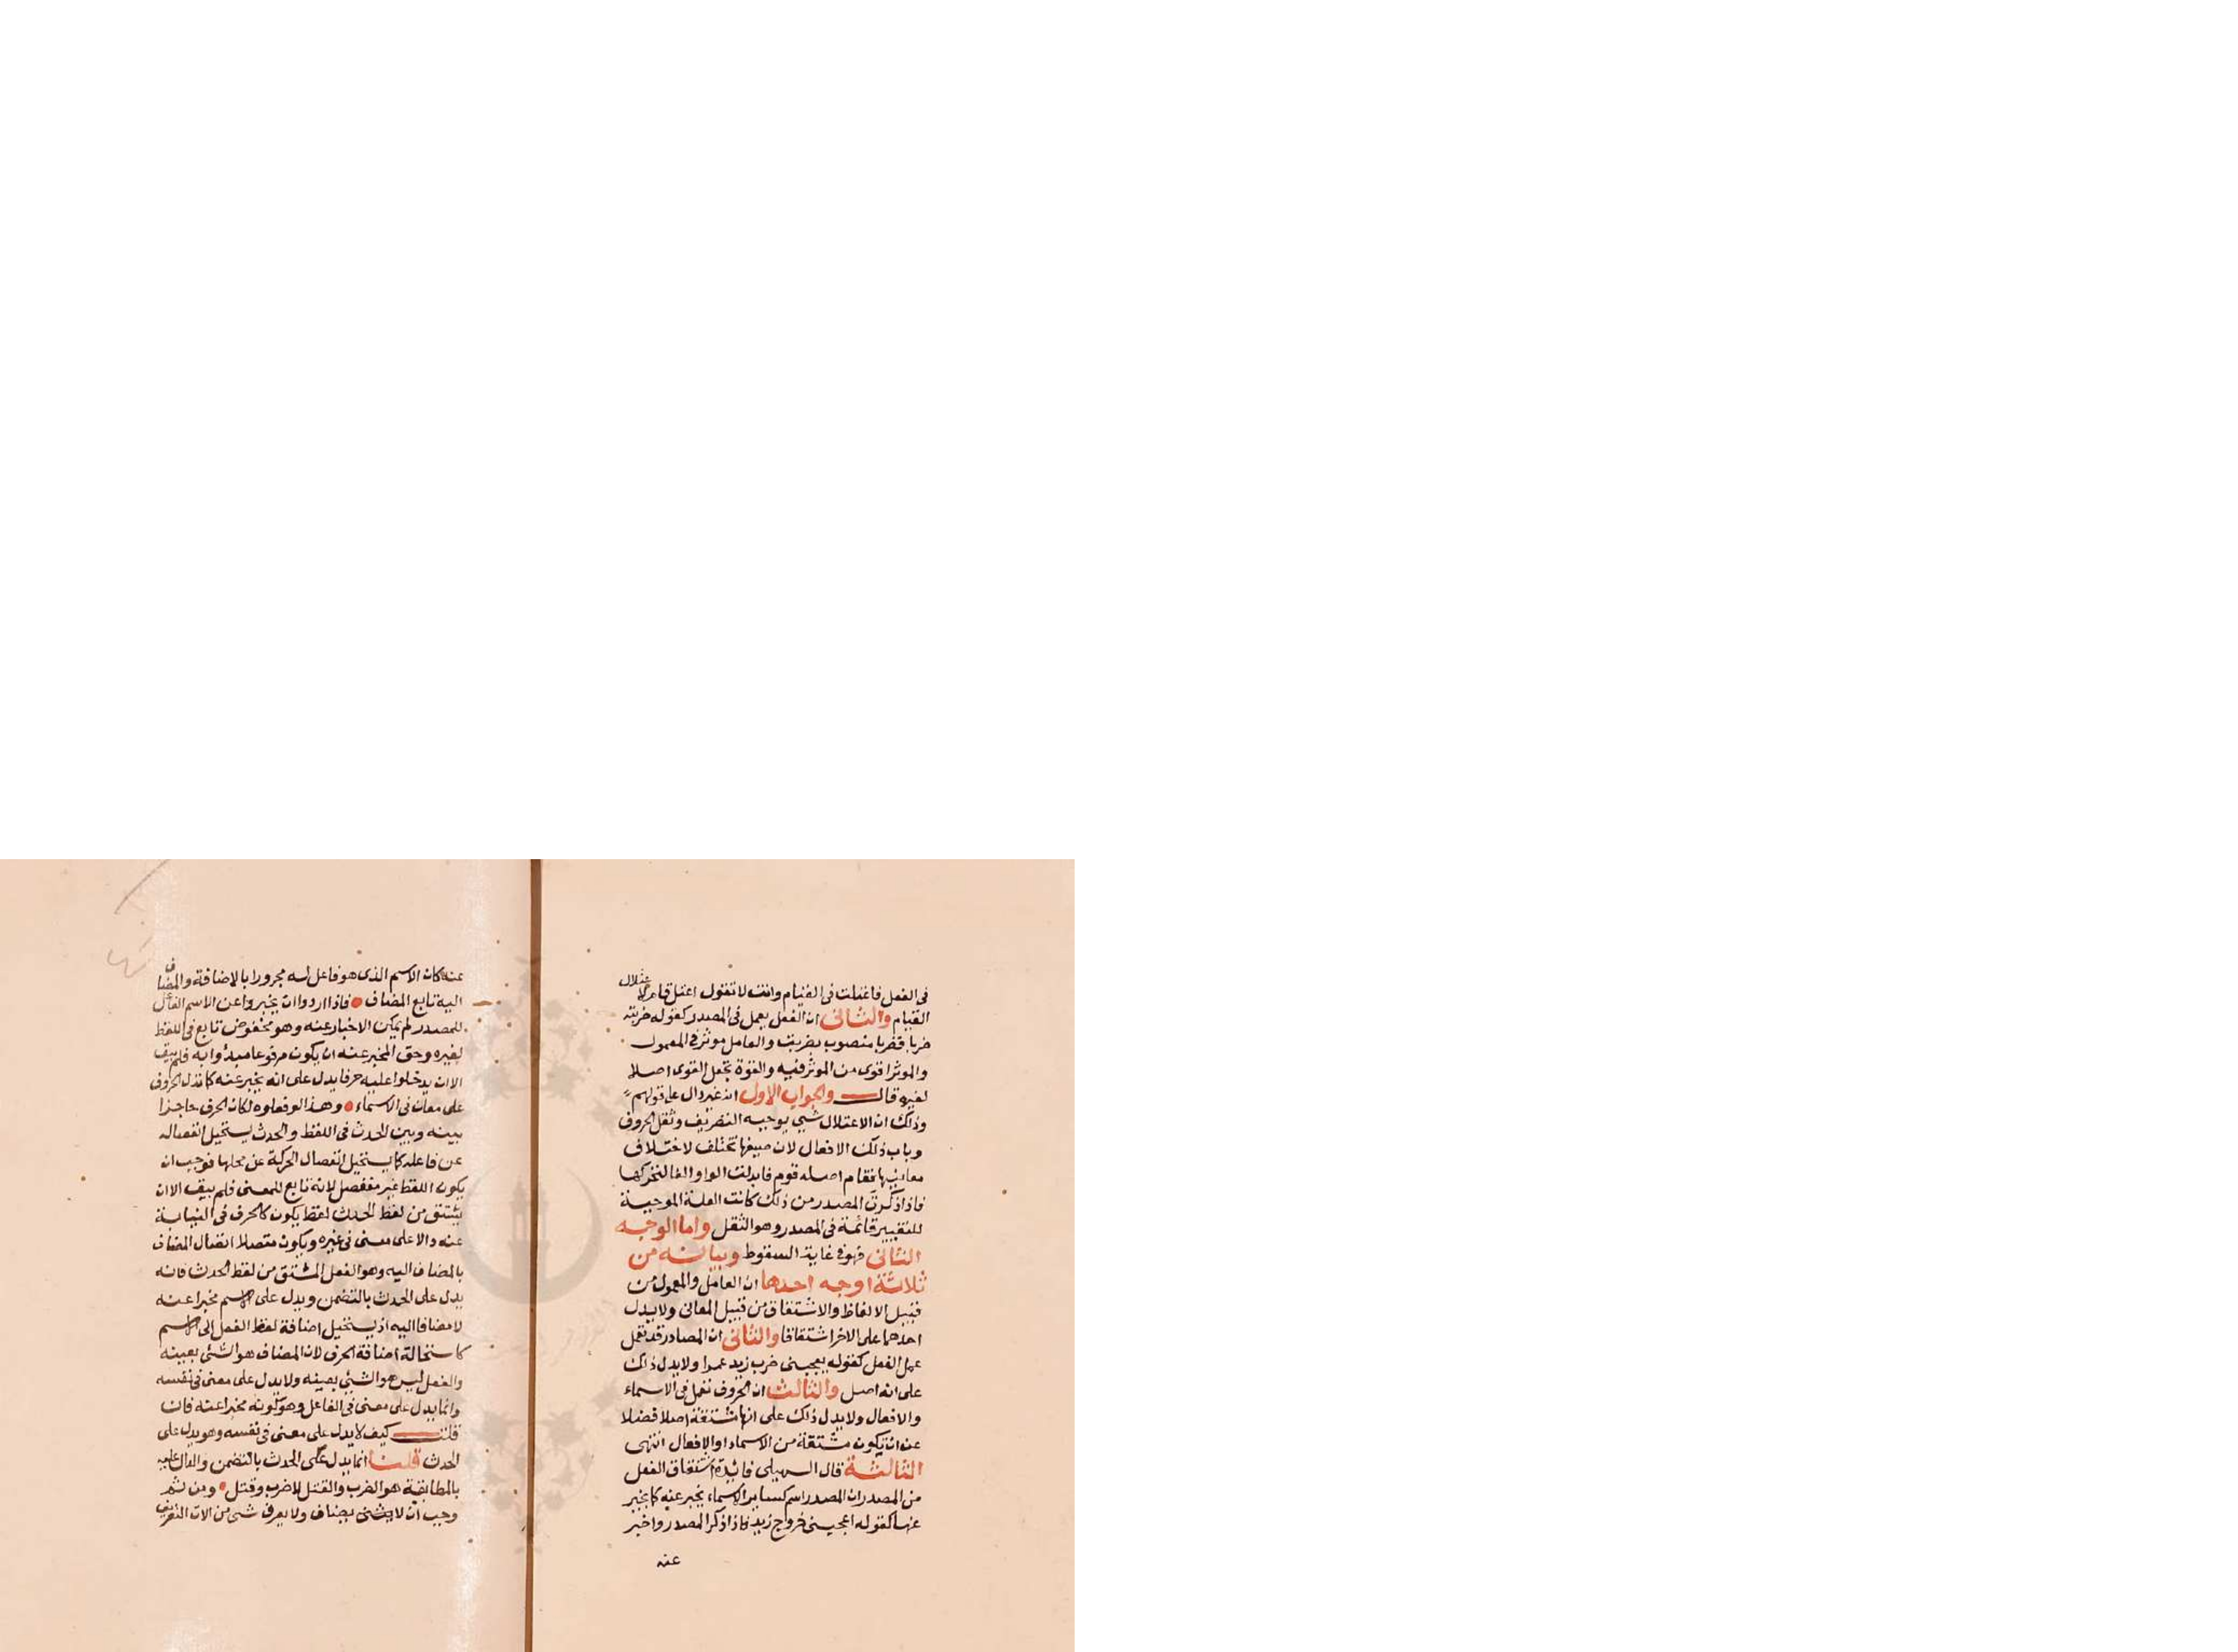 في الفعل فاعتلت في القيام وانت لا تقول اعتل قام لاعتلال
القيام والثاني ان الفعل يعمل في المصدر كقوله ضربته
ضربا فضربا منصوب بضربت والعامل موثر في المعمول
والموثر اقوى من الموثر فيه والقوة تجعل القوى اصلا
لغيره قال والجواب الاول انه غير دال على قولهم
وذلك ان الاعتلال شيي يوجبه التصريف وثقل الحروف
وباب ذلك الافعال لان صيغها تختلف لاختلاف
معانيها فقام اصله قوم فابدلت الواو الفا لتحركها
فاذا ذكرت المصدر من ذلك كانت العلة الموجبة
للتغيير قائمة في المصدر وهو الثقل واما الوجه
الثاني فهو في غاية السقوط وبيانه من
ثلاثة اوجه احدها ان العامل والمعمول من
قبيل الالفاظ والاشتقاق من قبيل المعاني ولا يدل
احدهما على الاخر اشتقاقا والثاني ان المصادر قد تعمل
عمل الفعل كقوله يعجبني ضرب زيد عمرا ولا يدل ذلك
على انه اصل والثالث ان الحروف تعمل في الاسماء
والافعال ولا يدل ذلك على انها مشتقة اصلا فضلا
عن ان تكون مشتقة من الاسماء او الافعال انتهى
الثالثة قال السهيلي فائدة اشتقاق الفعل
من المصدر ان المصدر اسم كساير الاسماء يخبر عنه كما يخبر
عنها كقوله اعجبني خروج زيد فاذا ذكر المصدر واخبر
عنه
عنه كان الاسم الذى هو فاعل له مجرورا بالاضافة والمضاف
اليه تابع المضاف فاذا اردوا ان يخبروا عن الاسم الفاعل
للمصدر لم يمكن الاخبار عنه وهو مخفوض تابع في اللفظ
لغيره وحق المخبر عنه ان يكون مرفوعا مبدوا به فلم يبق
الا ان يدخلوا عليه حرفا يدل على انه يخبر عنه كما تدل الحروف
على معان في الاسماء وهذا لو فعلوه لكان الحرف حاجزا
بينه وبين الحدث في اللفظ والحدث يستحيل انفصاله
عن فاعله كما يستحيل انفصال الحركة عن محلها فوجب ان
يكون اللفظ غير منفصل لانه تابع للمعنى فلم يبق الا ان
يشتق من لفظ الحدث لفظ يكون كالحرف في النيابة
عنه دالا على معنى في غيره ويكون متصلا اتصال المضاف
بالمضاف اليه وهو الفعل المشتق من لفظ الحدث فانه
يدل على الحدث بالتضمن ويدل على الاسم مخبرا عنه
لا مضافا اليه اذ يستحيل اضافة لفظ الفعل الى الاسم
كاستحالة اضافة الحرف لان المضاف هو الشئ بعينه
والفعل ليس هو الشيئ بعينه ولا يدل على معنى في نفسه
وانما يدل على معنى في الفاعل وهو كونه مخبرا عنه فان
قلت كيف لا يدل على معنى في نفسه وهو يدل على
الحدث قلنا انما يدل على الحدث بالتضمن والدال عليه
بالمطابقة هو الضرب والقتل لا ضرب وقتل ومن ثم
وجب ان لا يضاف ولا يعرف شئ من الات التعريف